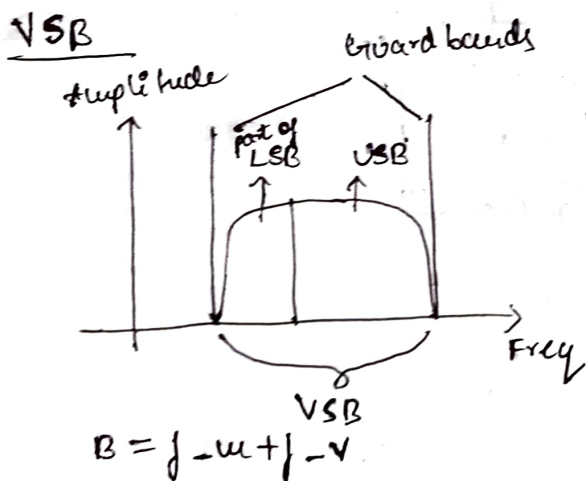 VSB
Guard bands
Amplitude
part of
LSB
USB
Freq
VSB
B = f_m + f_v